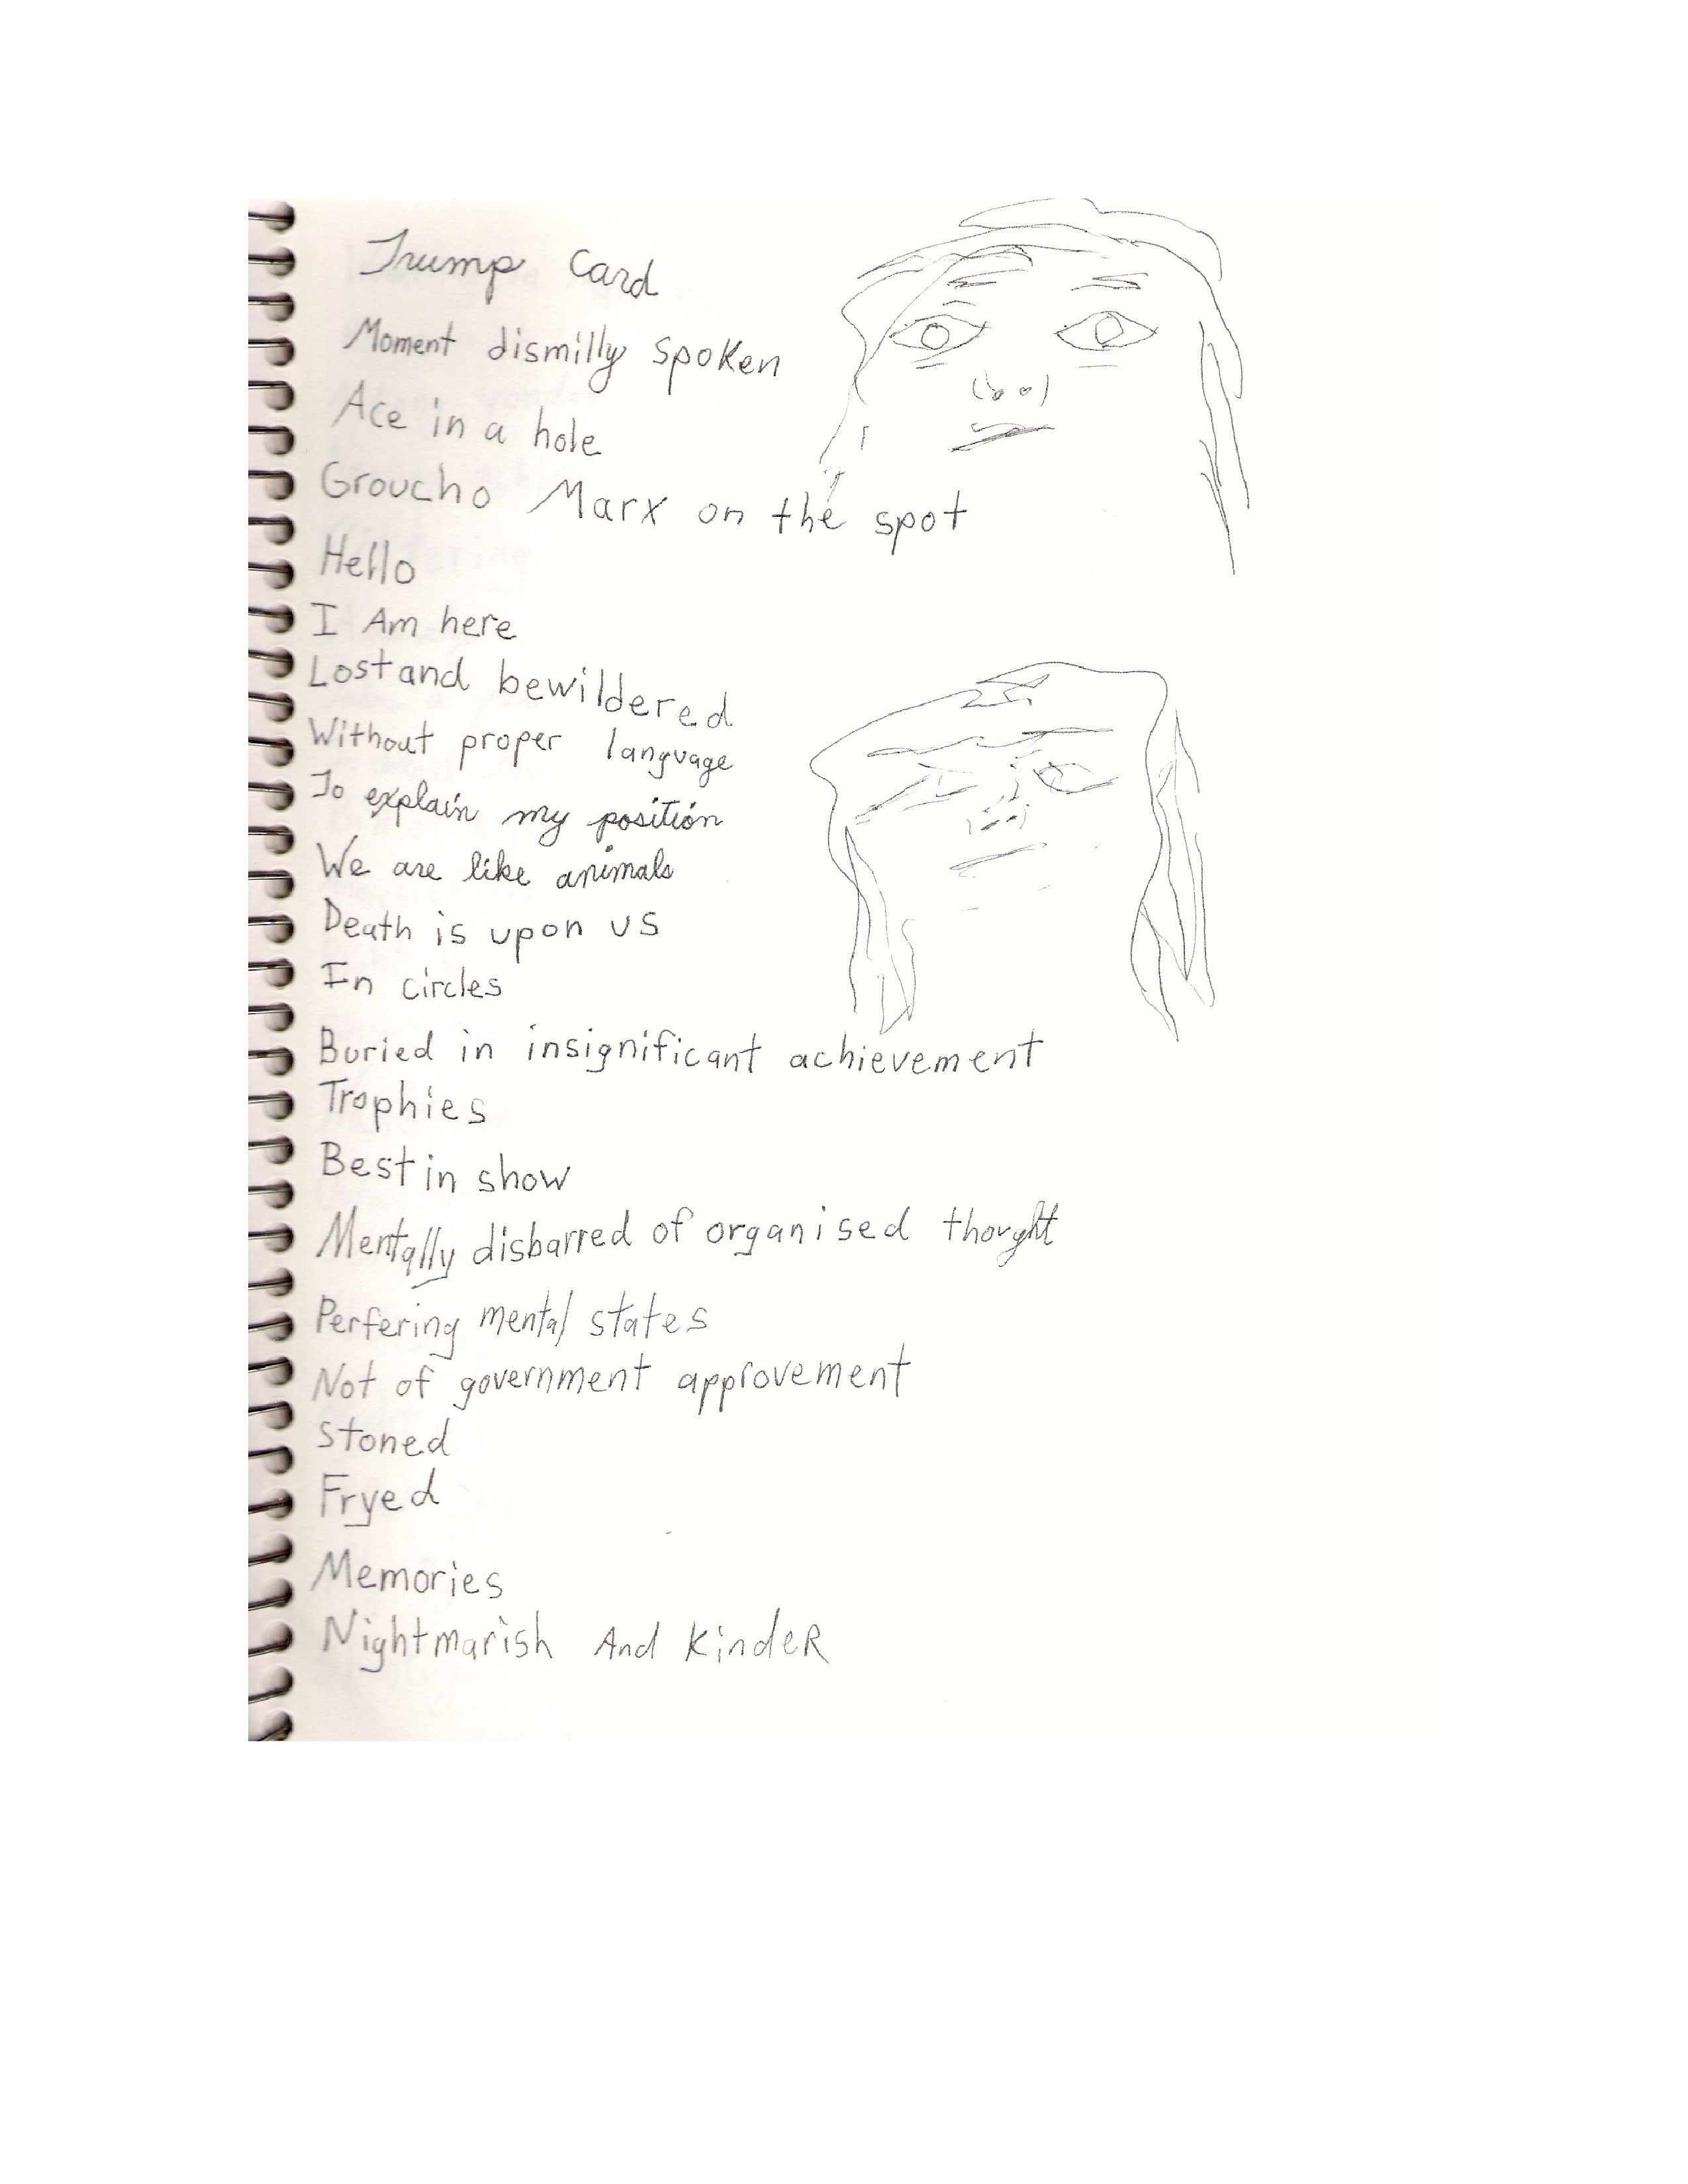 Trump Card
Moment dismilly spoken
Ace in a hole
Groucho Marx on the spot
Hello
I Am here
Lost and bewildered
Without proper language
To explain my position
We are like animals
Death is upon us
In circles
Buried in insignificant achievement
Trophies
Best in show
Mentally disbarred of organised thought
Perfering mental states
Not of government approvement
Stoned
Fryed
Memories
Nightmarish And KindeR